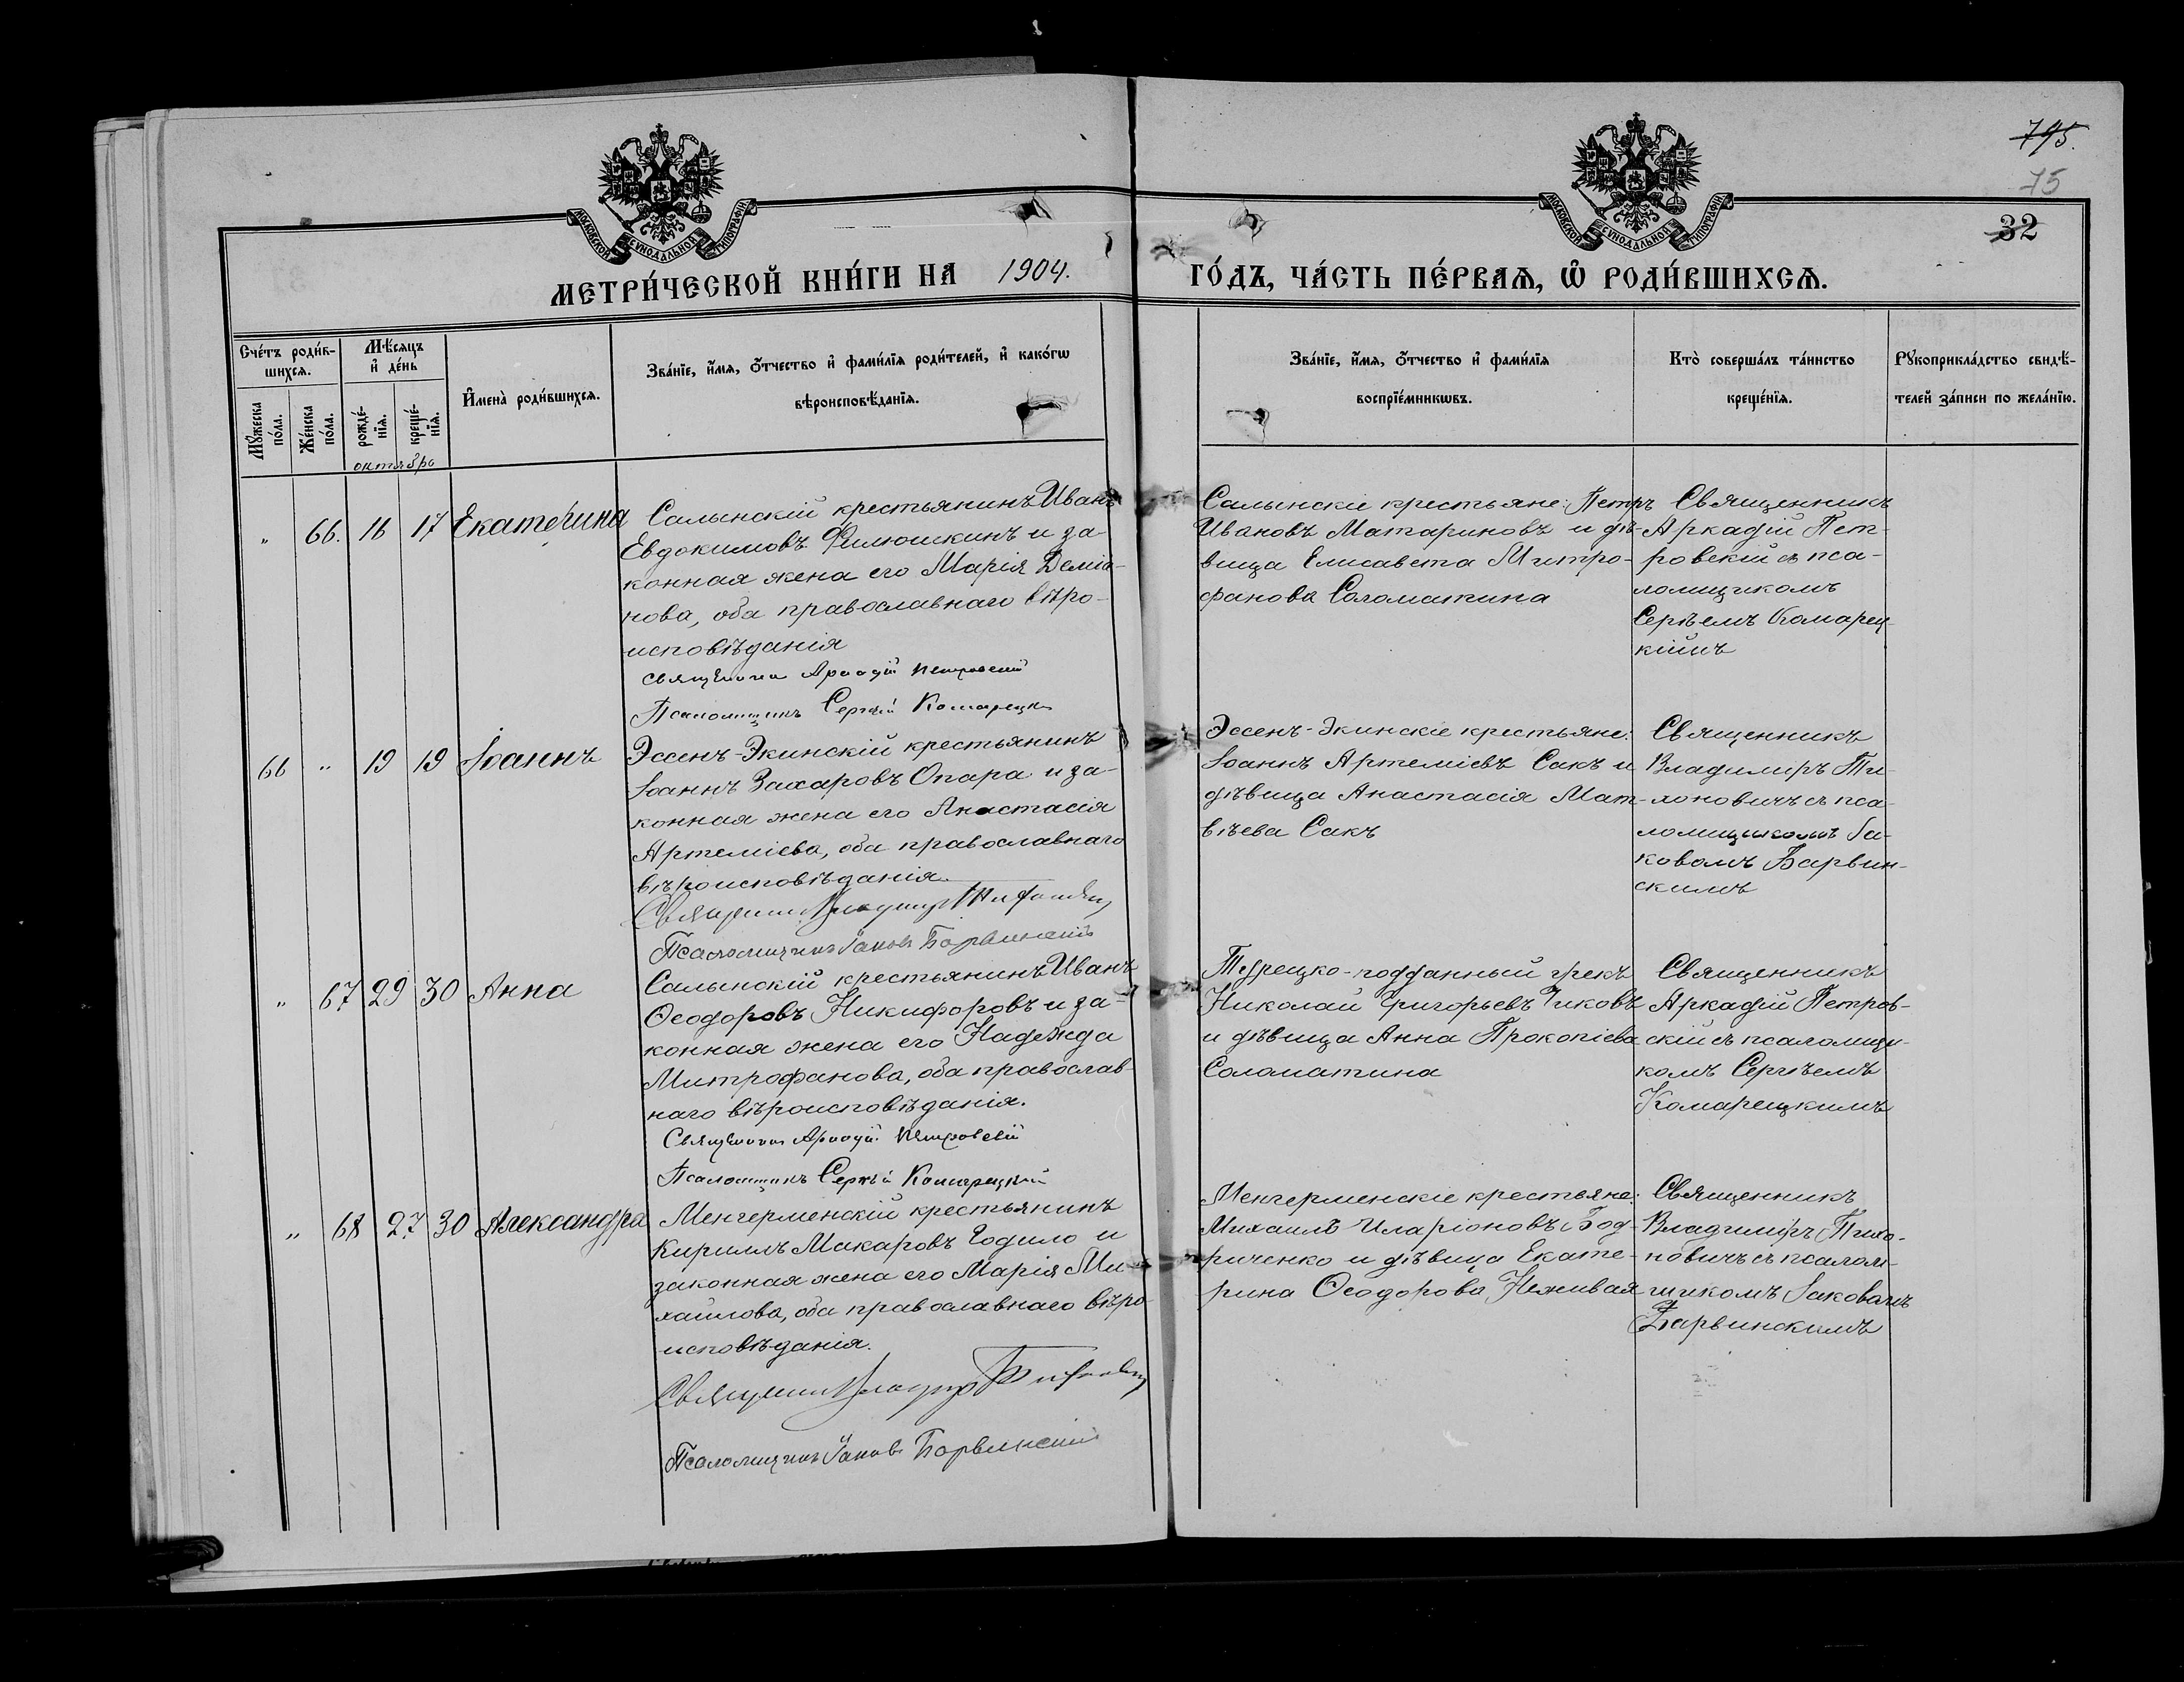 795.
75
32
МОСКОВСКОЙ СѴНОДАЛЬНОЙ ТИПОГРАФІИ
МОСКОВСКОЙ СѴНОДАЛЬНОЙ ТИПОГРАФІИ
МЕТРИ́ЧЕСКОЙ КНИ́ГИ НА 1904. ГО́ДЪ, ЧА́СТЬ ПЕ́РВАѦ, Ѡ҆ РОДИ́ВШИХСѦ.
Сче́тъ роди́в-
шихсѧ.
Мꙋ́жеска
по́ла.
Же́нска
по́ла.
Мѣ́сяцъ
и҆ де́нь
рожде́-
нїѧ.
креще́-
нїѧ.
октябрь
И҆мена̀ роди́вшихсѧ.
Зва́нїе, и҆́мѧ, ѻ҆́тчество и҆ фами́лїѧ роди́телей, и҆ како́гѡ
вѣроисповѣ́данїѧ.
Зва́нїе, и҆́мѧ, ѻ҆́тчество и҆ фами́лїѧ
воспрїе́мникѡвъ.
Кто̀ соверша́лъ та́инство
креще́нїѧ.
Рꙋкоприкла́дство свидѣ́-
телей за́писи по жела́нїю.
„ 66. 16 17 Екатерина
Салынскій крестьянинъ Иванъ
Евдокимовъ Филюшкинъ и за-
конная жена его Марія Деміа-
нова, оба православнаго вѣро-
исповѣданія
Священникъ Аркадій Петровскій
Псаломщикъ Сергѣй Комарецкій
Салынскіе крестьяне: Петръ
Ивановъ Матариновъ и дѣ-
вица Елисавета Митро-
фанова Соломатина
Священникъ
Аркадій Пет-
ровскій съ пса-
ломщикомъ
Сергѣемъ Комарец-
кимъ
66 „ 19 19 Іоаннъ
Эссенъ-Экинскій крестьянинъ
Іоаннъ Захаровъ Опара и за-
конная жена его Анастасія
Артеміева, оба православнаго
вѣроисповѣданія.
Священникъ Владиміръ
Псаломщикъ Іаковъ Барвинскій
Эссенъ-Экинскіе крестьяне:
Іоаннъ Артеміевъ Сакъ и
дѣвица Анастасія Мат-
вѣева Сакъ
Священникъ
Владимиръ Ти-
хоновичъ съ пса-
ломщикомъ Іа-
ковомъ Барвин-
скимъ
„ 67 29 30 Анна
Салынскій крестьянинъ Иванъ
Ѳеодоровъ Никифоровъ и за-
конная жена его Надежда
Митрофанова, оба православ-
наго вѣроисповѣданія.
Священникъ Аркадій Петровскій
Псаломщикъ Сергѣй Комарецкій
Турецко-подданный грекъ
Николай Григорьевъ Чиковъ
и дѣвица Анна Прокопіева
Соломатина
Священникъ
Аркадій Петров-
скій съ псаломщи-
комъ Сергѣемъ
Комарецкимъ
„ 68 27 30 Александра
Менгерменскій крестьянинъ
Кириллъ Макаровъ Годило и
законная жена его Марія Ми-
хаилова, оба православнаго вѣро-
исповѣданія.
Священникъ Владиміръ
Псаломщикъ Іаковъ Барвинскій
Менгерменскіе крестьяне:
Михаилъ Иларіоновъ Бод-
риченко и дѣвица Екате-
рина Ѳеодорова Неживая
Священникъ
Владимиръ Тихо-
новичъ съ псалом-
щикомъ Іаковомъ
Барвинскимъ